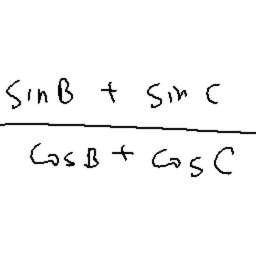 SinB + Sin C
CosB + Cos C